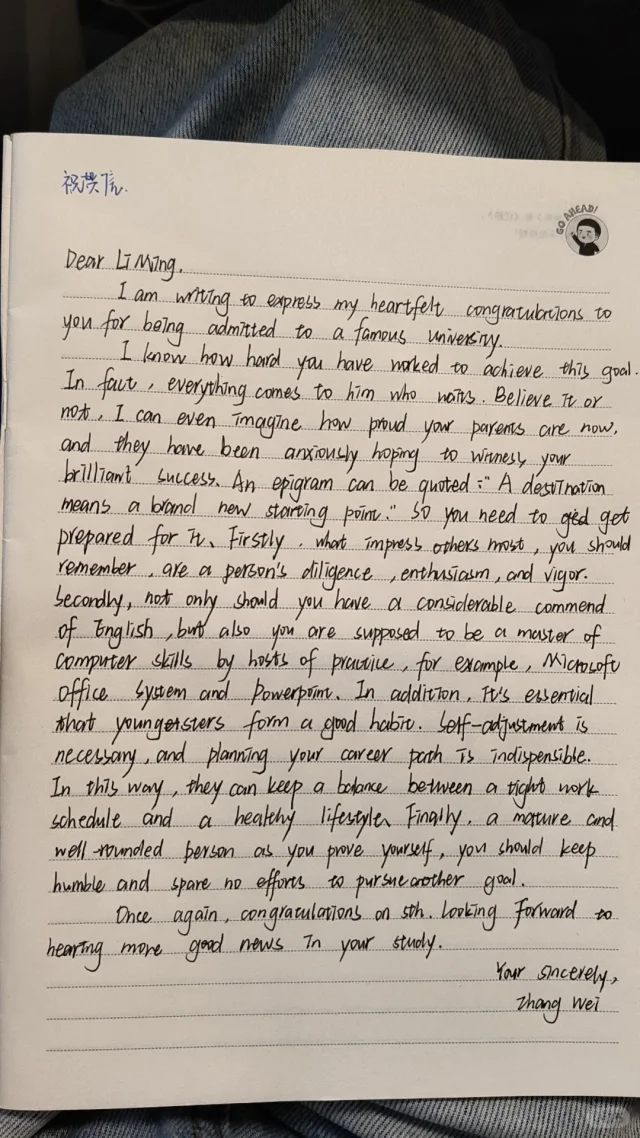 祝贺信.
GO AHEAD!
Dear Li Ming,
I am writing to express my heartfelt congratulations to
you for being admitted to a famous university.
I know how hard you have worked to achieve this goal.
In fact, everything comes to him who waits. Believe it or
not, I can even imagine how proud your parents are now,
and they have been anxiously hoping to witness your
brilliant success. An epigram can be quoted: "A destination
means a brand new starting point." So you need to get
prepared for it. Firstly, what impress others most, you should
remember, are a person's diligence, enthusiasm, and vigor.
Secondly, not only should you have a considerable commend
of English, but also you are supposed to be a master of
computer skills by hosts of practice, for example, Microsoft
Office System and Powerpoint. In addition, it's essential
that youngersters form a good habit. Self-adjustment is
necessary, and planning your career path is indispensible.
In this way, they can keep a balance between a tight work
schedule and a healthy lifestyle. Finally, a mature and
well-rounded person as you prove yourself, you should keep
humble and spare no efforts to pursue another goal.
Once again, congratulations on sth. Looking forward to
hearing more good news in your study.
Your sincerely,
Zhang Wei